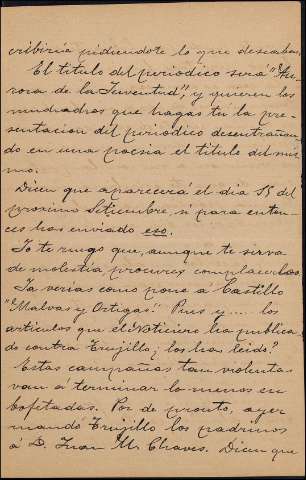 cribiria pidiendote lo que deseabas.
El titulo del periodico será "Au-
rora de la Juventud", y quieren los
muchachos que hagas tú la pre-
sentacion del periodico desentrañan-
do en una poesia el titulo del mis-
mo.
Dicen que aparecerá el dia 15 del
proximo Setiembre, si para enton-
ces has enviado eso.
Yo te ruego que, aunque te sirva
de molestia procures complacerlos.
Ya verias como pone á Castillo
"Malvas y Ortigas". Pues y.... los
articulos que el Noticiero ha publica-
do contra Trujillo; los has leido?
Estas campañas tan violentas
van á terminar lo menos en
bofetadas. Por de pronto, ayer
mandó Trujillo los padrinos
á D. Juan M. Chaves. Dicen que